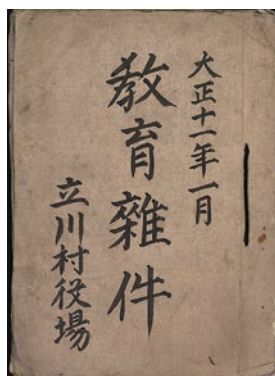 大正十一年一月
教育雜件
立川村役場